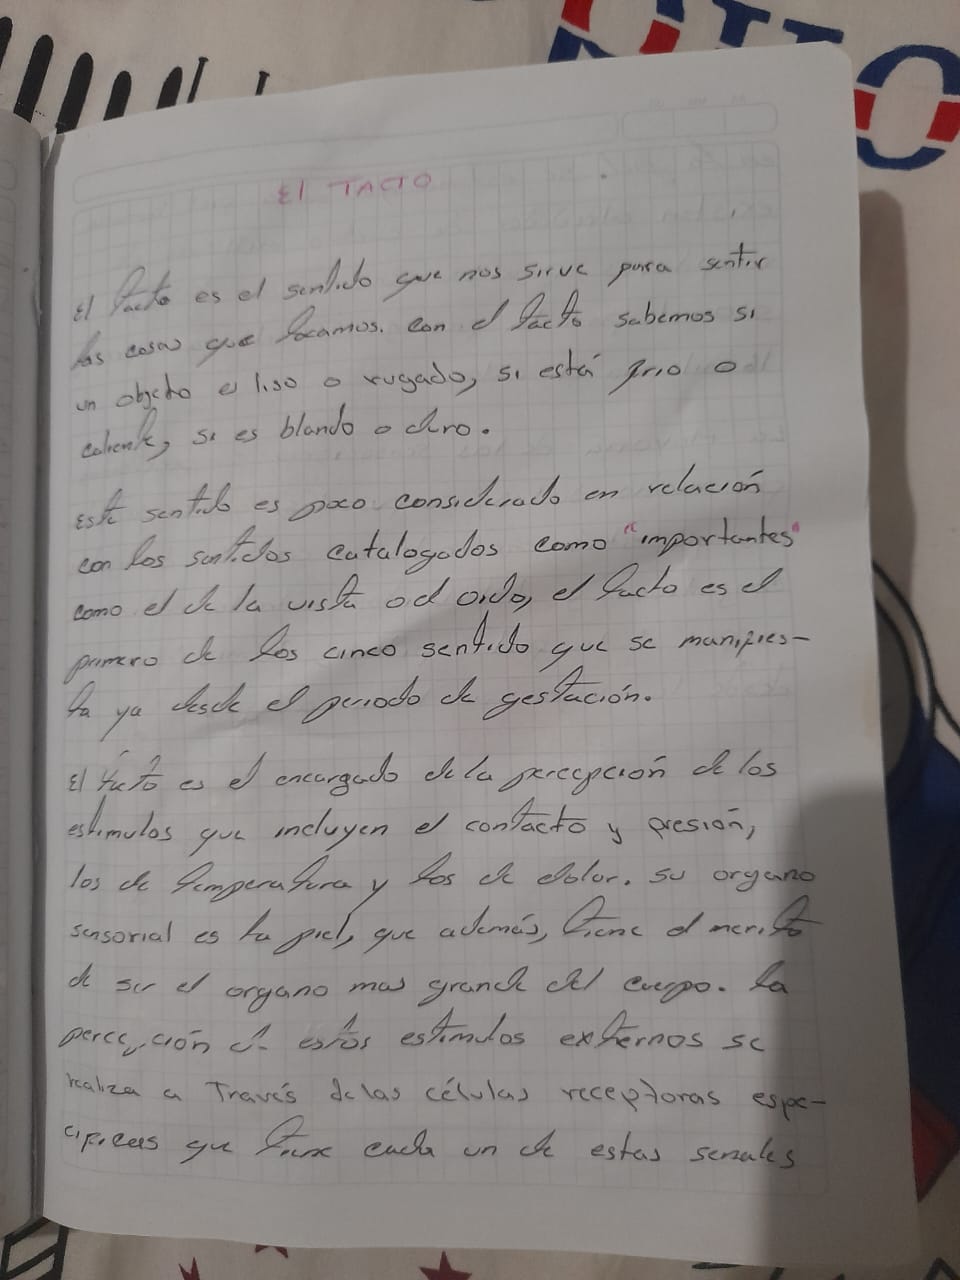 El TACTO
El tacto es el sentido que nos sirve para sentir
las cosas que tocamos. con el tacto sabemos si
un objeto es liso o rugado, si está frio o
caliente, si es blando o duro.
Este sentido es poco considerado en relación
con los sentidos catalogados como "importantes"
como el de la vista o el oido, el tacto es el
primero de los cinco sentido que se manifies-
ta ya desde el periodo de gestación.
El tacto es el encargado de la percepción de los
estimulos que incluyen el contacto y presión,
los de temperatura y los de dolor. su organo
sensorial es la piel, que además, tiene el merito
de ser el organo mas grande del cuerpo. la
percepción de estos estimulos externos se
realiza a Través de las células receptoras espe-
cificas que tiene cada un de estas señales